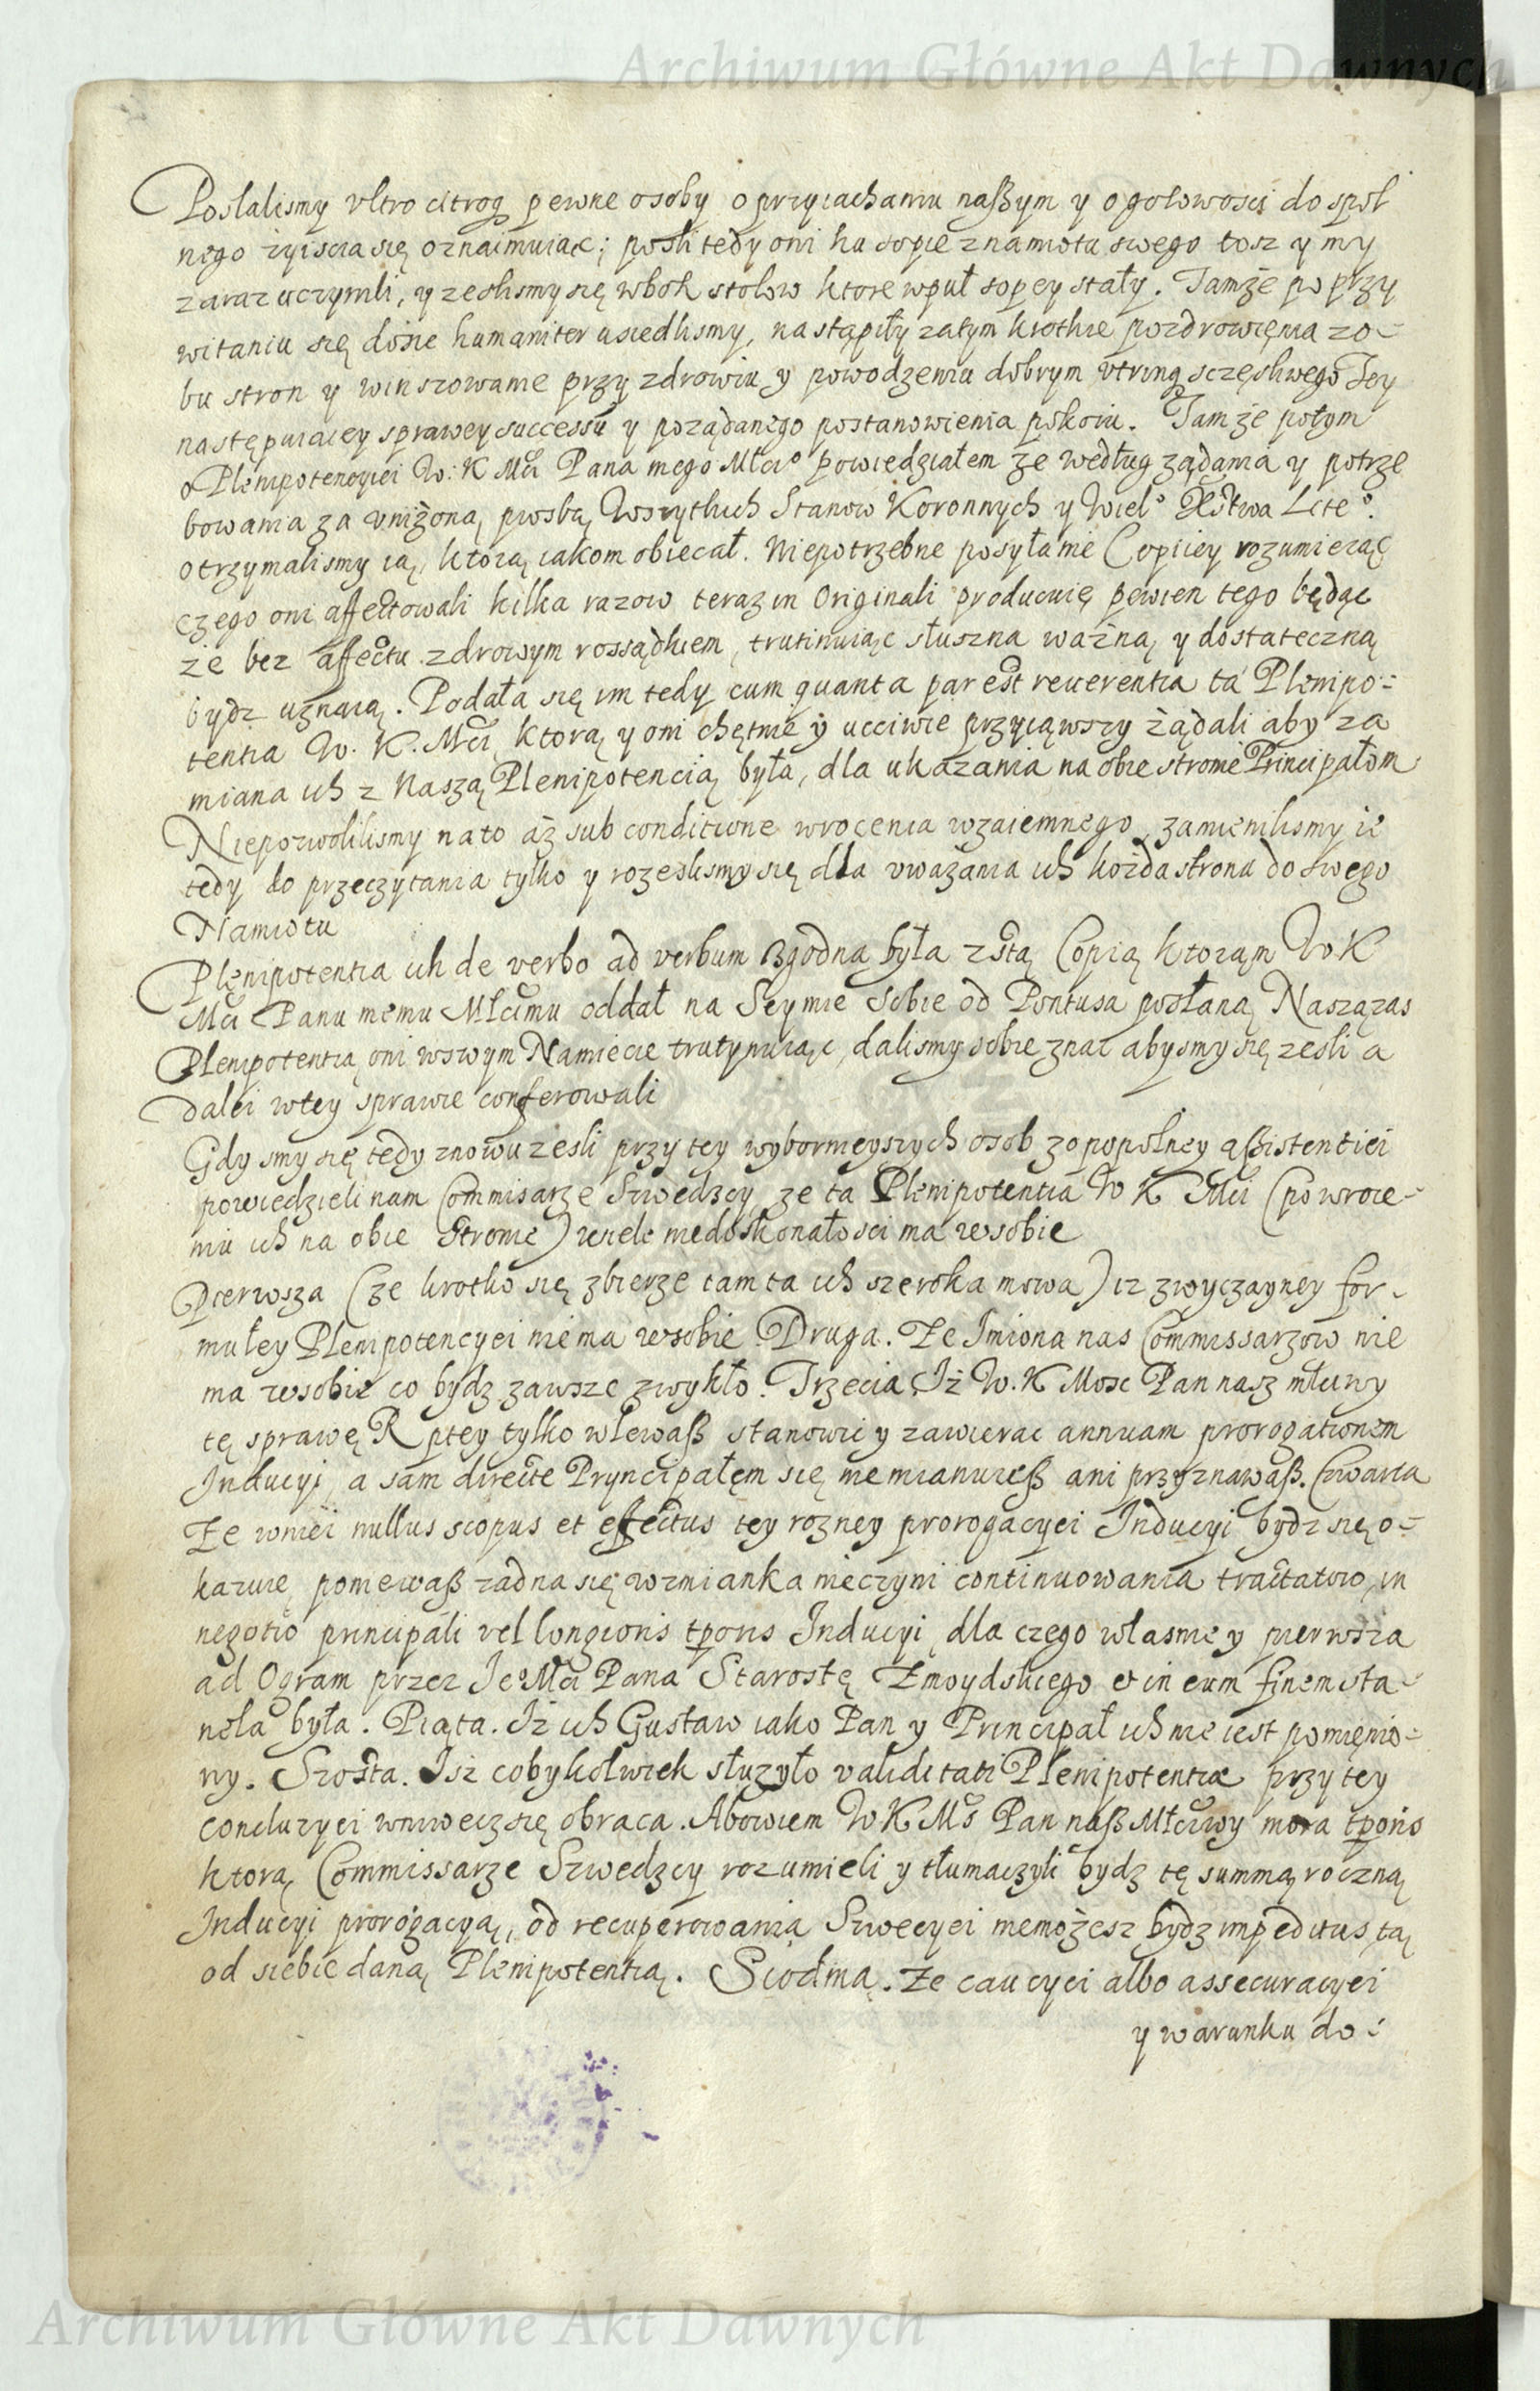 Archiwum Główne Akt Dawnych
Poslalismy vltro citroq pewne osoby o przyiachaniu naßym y o gotowosci do spol
nego zyiscia się oznaimuiąc; poshli tedy oni ku sopie z namiotu swego tosz y my
zaraz uczynili, y zeshlismy się wbok stolow ktore wpuł sopey stały. Tamże po przy
witaniu się dosic humaniter usiedlismy, nastąpiły zatym krothie pozdrowięnia zo-
bu stron y winszowanie przy zdrowiu y powodzeniu dobrym vtrinq sczęsliwego Tey
następuiacey sprawey successu y poządanego postanowienia pokoiu. Tamże potym
o Plenipotencyiei W: K Mći Pana mego Młciº powiedziałem że według ządania y potrze
bowania za vniżoną prosbą Wszytkich Stanow Koronnych y Wielº Xstwa Liteº.
otrzymalismy ią, którą iakom obiecał. Niepotrzebne posyłanie Copiiey rozumieiąc
czego oni affectowali kilka razow teraz in Originali producuię pewien tego będąc
że bez affectu zdrowym rossądkiem, trutinuiąc słuszna ważną y dostateczną
bydz uznaią. Podała się im tedy cum quanta par est reuerentia ta Plenipo-
tentia W. K. Mći, ktorą y oni chętnie y ucciwie przyiąwszy żądali aby za
miana ich z Naszą Plenipotencią była, dla ukazania na obie stronie Principałom
Niepozwolilismy na to aż sub conditione wrocenia wzaiemnego, zamienilismy ie
tedy do przeczytania tylko y rozeshlismy się dla vważania ich kożda strona do swego
Namiotu
Plenipotentia ich de verbo ad verbum zgodna była z stą Copią ktorąm W K
Mći Panu memu Młcimu oddał na Seymie Sobie od Pontusa posłaną Naszązas
Plenipotentią oni wswym Namiecie trutynuiąc, dalismy sobie znac abysmy się zesli a
dalei wtey sprawie conferowali
Gdysmy się tedy znowu zesli przy tey wybornieyszych osob zopopolney aßistentiei
powiedzieli nam Commisarze Szwedzcy ze ta Plenipotentia W K Mći (po wroce-
niu ich na obie Stronie) wiele niedoskonałosci ma wsobie
Pierwsza (że krotko się zbierze tamta ich szeroka mowa) iz zwyczayney for-
mułey Plenipotencyei nie ma wsobie Druga. Ze Imiona nas Commissarzow nie
ma wsobie co bydz zawsze zwykło. Trzecia Iż W. K Mosc Pan nasz młciwy
tę sprawę Rptey tylko wlewaß stanowic y zawierac annuam prorogationem
Inducyi, a sam directe Pryncipałęm się nie mianuieß ani przyznawaß. Czwarta
Ze wniei nullus scopus et effectus tey rozney prorogacyei Inducyi bydz się o-
kazuię poniewaß zadna się wzmianka nieczyni continuowania tractatow, in
negotio principali vel longioris tporis Inducyi, dla czego własnie y pierwsza
ad Ogram przez Ieº Mći Pana Starostę Zmoydskiego et in eum finem sta-
nęła była. Piąta. Iż ich Gustaw iako Pan y Principał ich nie iest pomięnio-
ny. Szosta. Isz cobykolwiek słuzyło validitati Plenipotentiæ przy tey
concluzyei wniwecz się obraca. Abowiem W K Mć Pan naß Młciwy mora tporis
ktorą Commissarze Szwedzcy rozumieli y tłumaczyli bydz tę summą roczną
Inducyi prorogacyą, od recuperowania Szwecyei niemożesz bydz impeditus tą
od siebie daną Plenipotentią. Siodma. Ze caucyei albo assecuracyei
y warunku do-
Archiwum Główne Akt Dawnych